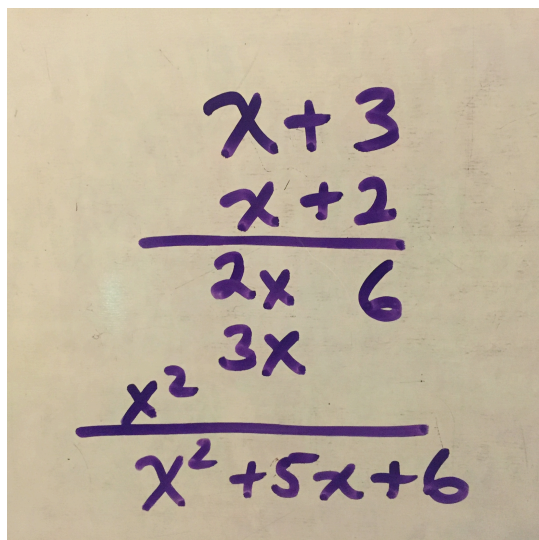 x + 3
x + 2
2x 6
3x
x²
x² + 5x + 6